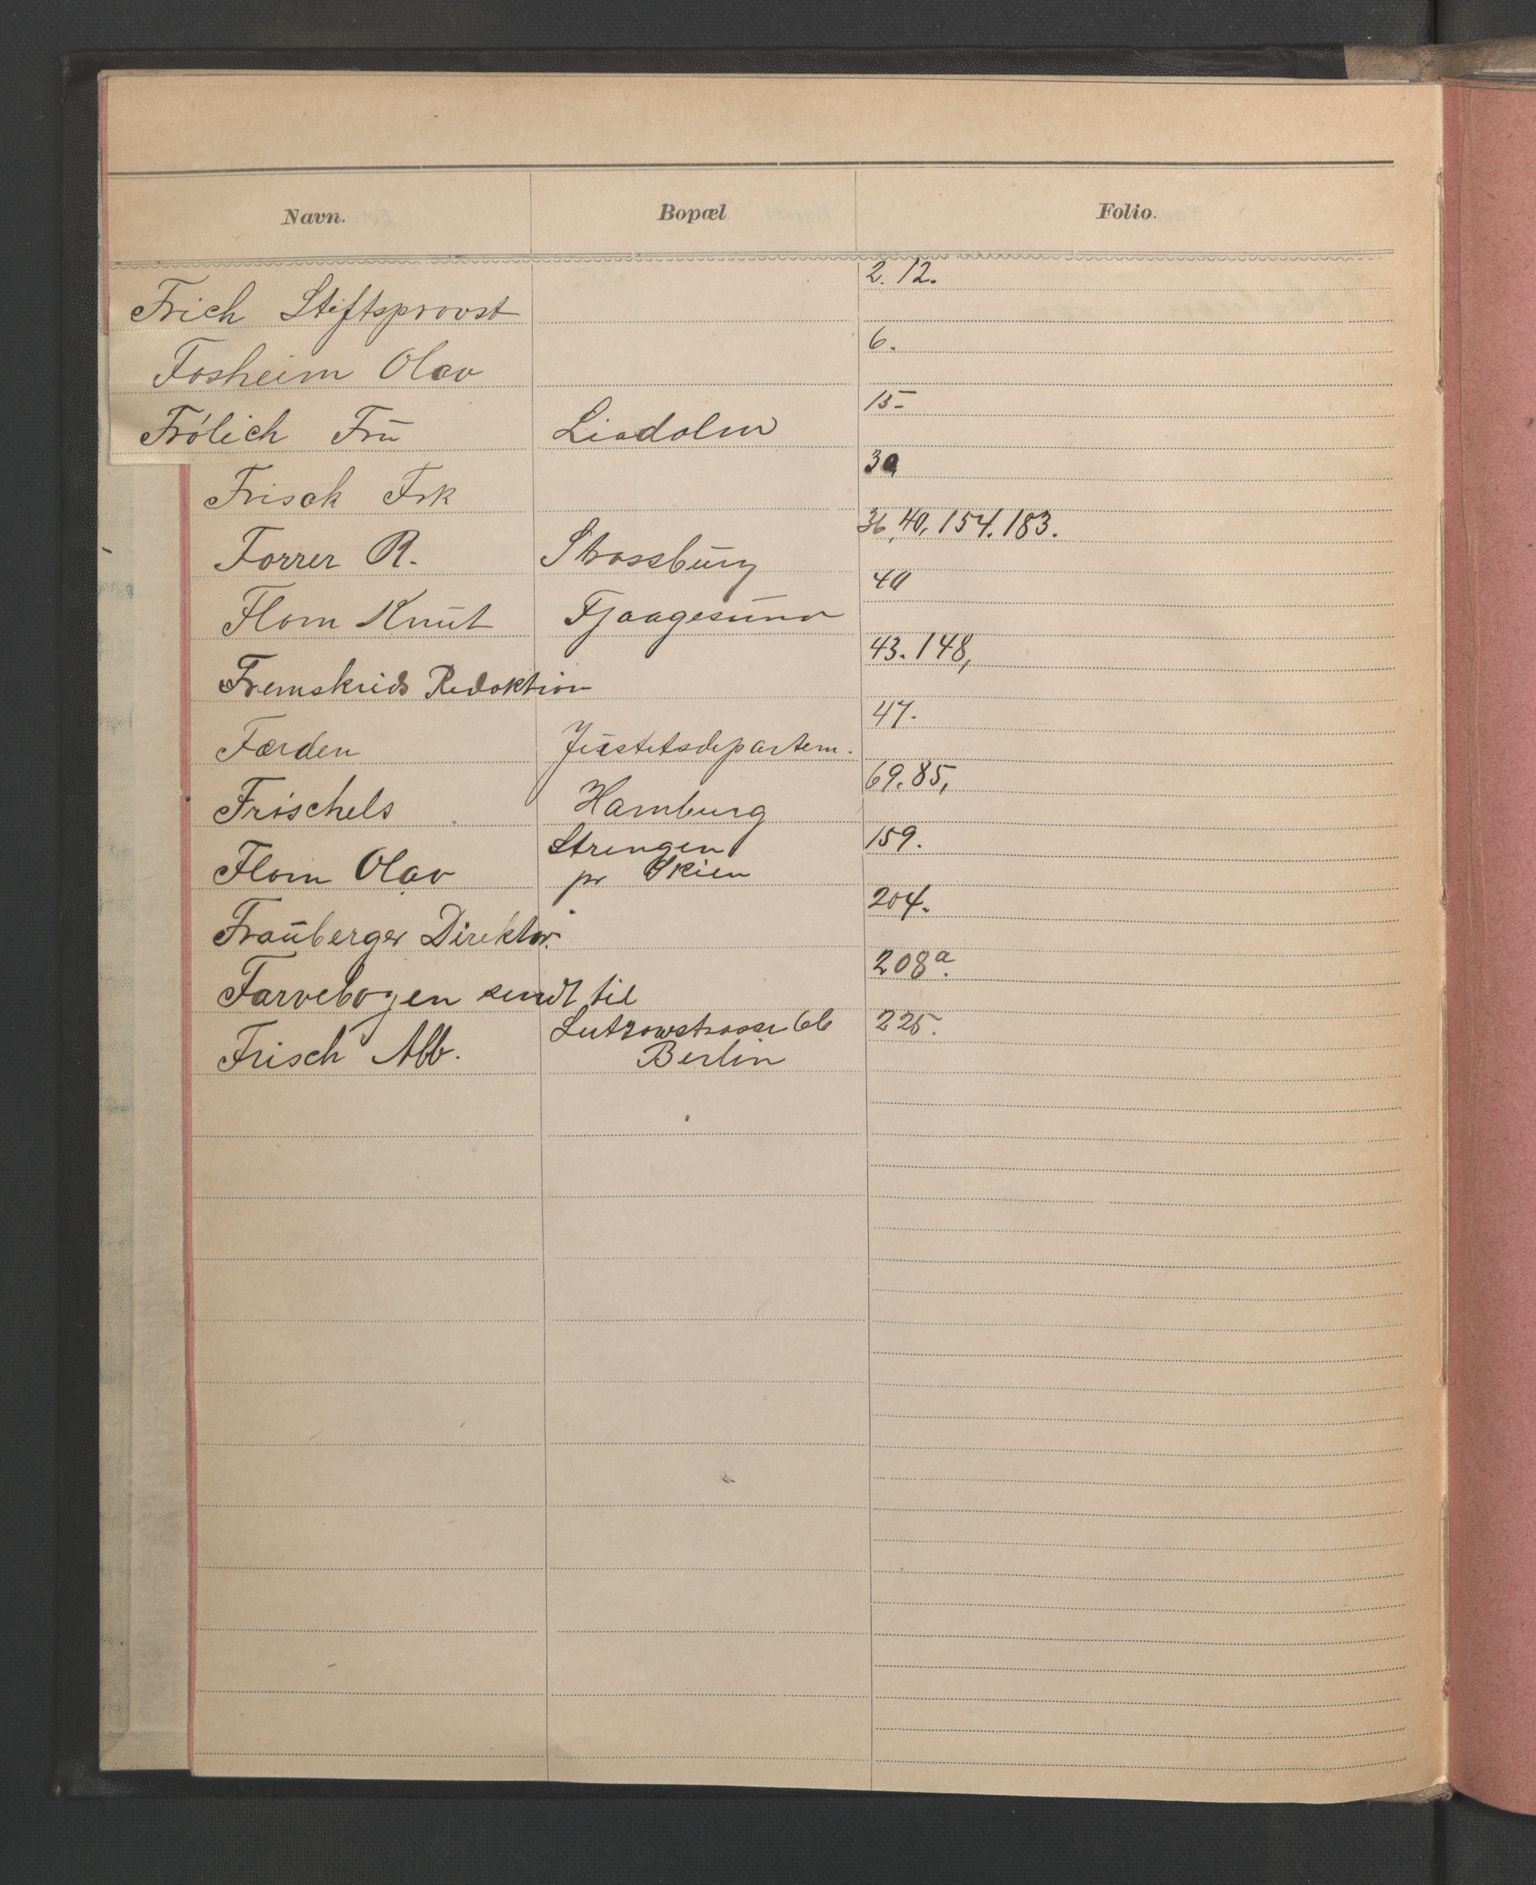 Navn. Bopæl Folio.
Frich Stiftsprovst 2. 12.
Fosheim Olav 6.
Frölich Frū 15-
Frisak Frk 30
Forrer R. Strassbūrg 36, 40, 154. 183.
Flom Knūt Fjaagesūnd 40
Fremskrids Redaktion 43. 148,
Færden Jūstitsdepartem. 47.
Frischels Hamburg 69. 85,
Flom Olav Strengen 159.
pr Skien
Fraūberger Direktør. 204.
Farvebogen sendt til 208a.
Frisch Alb. Lutzowstrasse 66 225.
Berlin